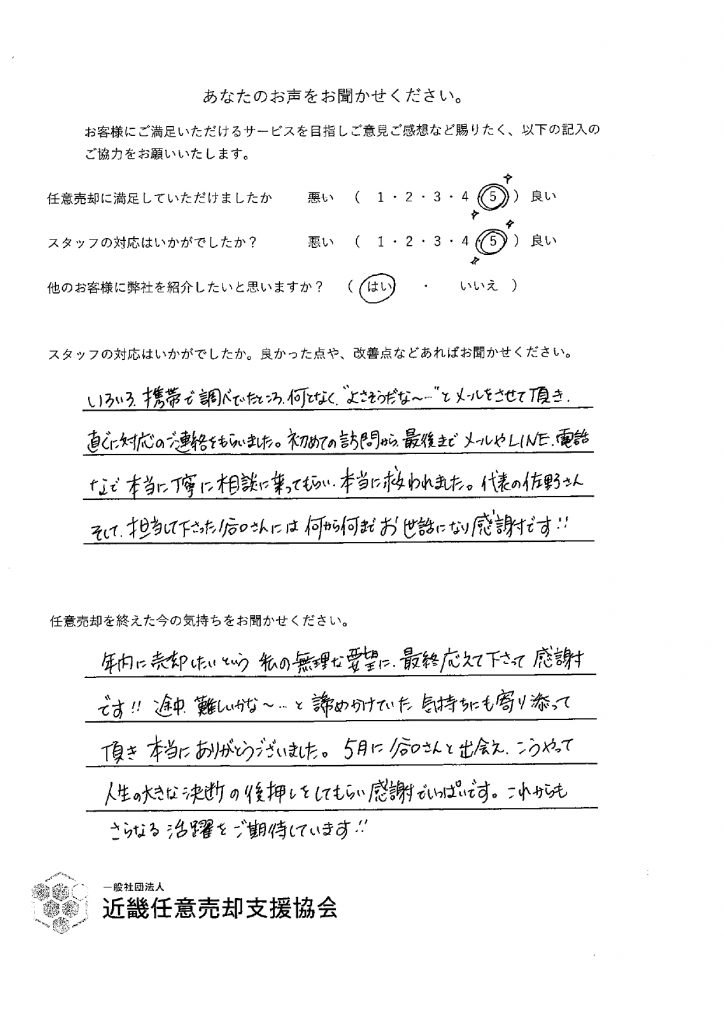 あなたのお声をお聞かせください。
お客様にご満足いただけるサービスを目指しご意見ご感想など賜りたく、以下の記入の
ご協力をお願いいたします。
任意売却に満足していただけましたか 悪い ( 1・2・3・4・5 ) 良い
スタッフの対応はいかがでしたか? 悪い ( 1・2・3・4・5 ) 良い
他のお客様に弊社を紹介したいと思いますか? ( はい ・ いいえ )
スタッフの対応はいかがでしたか。良かった点や、改善点などあればお聞かせください。
いろいろ、携帯で調べていたところ、何となく、"よさそうだな〜…"とメールをさせて頂き、
直ぐに対応のご連絡をもらいました。初めての訪問から、最後までメールやLINE、電話
などで本当に丁寧に相談に乗ってもらい、本当に救われました。代表の佐野さん
そして、担当して下さった谷口さんには何から何までお世話になり感謝です!!
任意売却を終えた今の気持ちをお聞かせください。
年内に売却したいという私の無理な要望に、最終応えて下さって感謝
です!!途中、難しいかな〜…と諦めかけていた気持ちにも寄り添って
頂き本当にありがとうございました。5月に谷口さんと出会え、こうやって
人生の大きな決断の後押しをしてもらい感謝でいっぱいです。これからも
さらなる活躍をご期待しています!!
一般社団法人
近畿任意売却支援協会